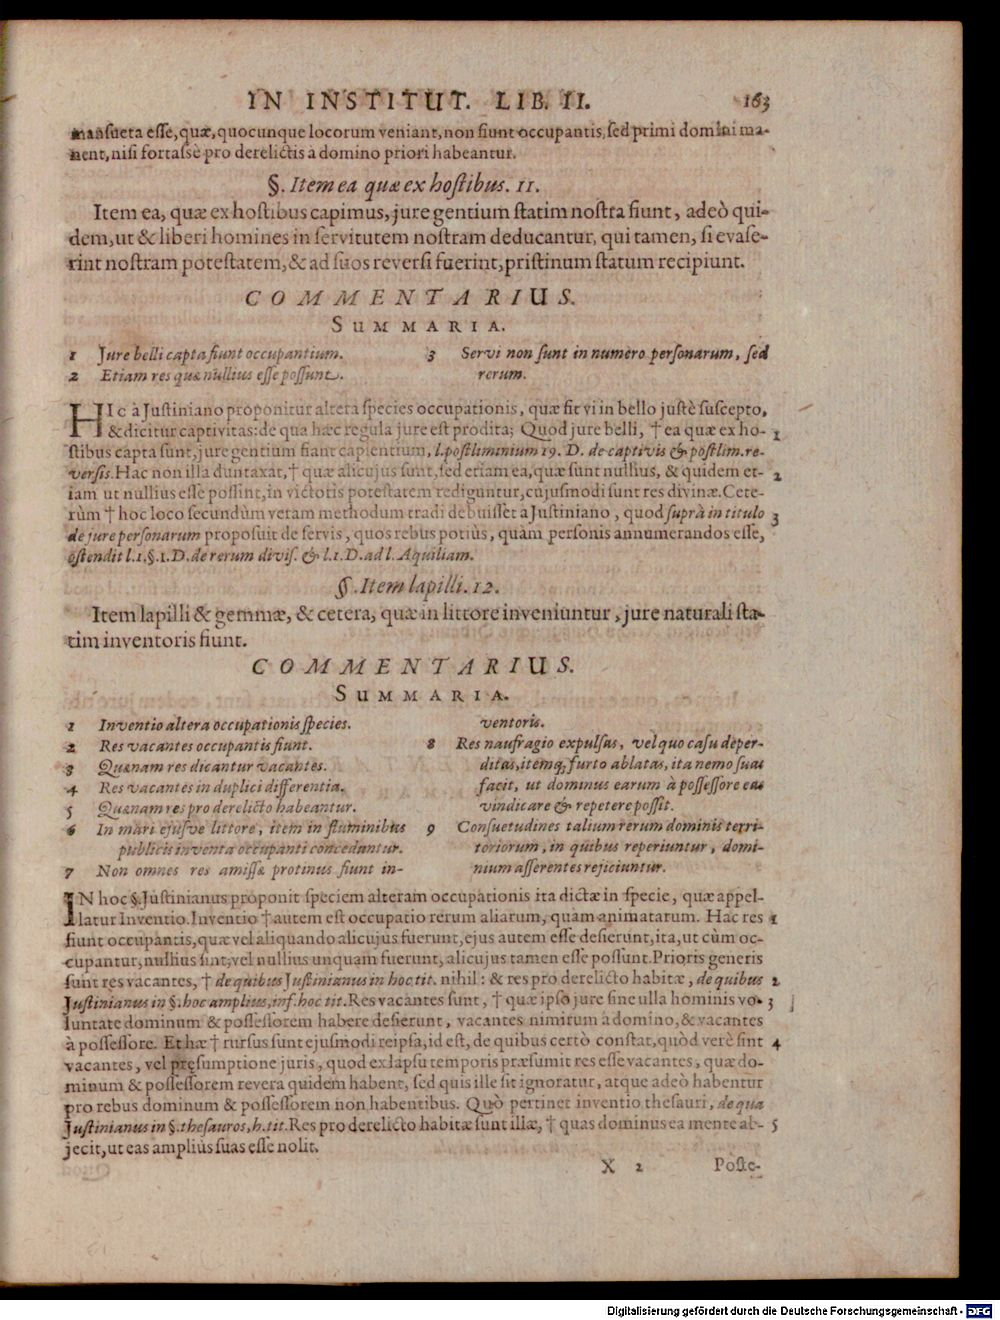 IN INSTITUT. LIB. II. 163
mansueta esse, quæ, quocunque locorum veniant, non fiunt occupantis, sed primi domini ma-
nent, nisi fortassè pro derelictis à domino priori habeantur.
§. Item ea quæ ex hostibus. 11.
Item ea, quæ ex hostibus capimus, jure gentium statim nostra fiunt, adeò qui-
dem, ut & liberi homines in servitutem nostram deducantur, qui tamen, si evase-
rint nostram potestatem, & ad suos reversi fuerint, pristinum statum recipiunt.
COMMENTARIUS.
SUMMARIA.
1 Jure belli capta fiunt occupantium.
2 Etiam res quæ nullius esse possunt.
3 Servi non sunt in numero personarum, sed
rerum.
HIc à Justiniano proponitur altera species occupationis, quæ fit vi in bello justè suscepto,
& dicitur captivitas: de qua hæc regula jure est prodita; Quod jure belli, † ea quæ ex ho- 1
stibus capta sunt, jure gentium fiant capientium, l. postliminium 19. D. de captivis & postlim. re-
versis. Hac non illa duntaxat, † quæ alicujus sunt, sed etiam ea, quæ sunt nullius, & quidem et- 2
iam ut nullius esse possint, in victotis potestatem rediguntur, cujusmodi sunt res divinæ. Cete-
rùm † hoc loco secundùm veram methodum tradi debuisset à Justiniano, quod suprà in titulo 3
de jure personarum proposuit de servis, quos rebus potiùs, quàm personis annumerandos esse,
ostendit l. 1. §. 1. D. de rerum divis. & l. 1. D. ad l. Aquiliam.
§. Item lapilli. 12.
Item lapilli & gemmæ, & cetera, quæ in littore inveniuntur, jure naturali sta-
tim inventoris fiunt.
COMMENTARIUS.
SUMMARIA.
1 Inventio altera occupationis species.
2 Res vacantes occupantis fiunt.
3 Quænam res dicantur vacantes.
4 Res vacantes in duplici differentia.
5 Quænam res pro derelicto habeantur.
6 In mari ejusve littore, item in fluminibus
publicis inventa occupanti conceduntur.
7 Non omnes res amissæ protinus fiunt in-
ventoris.
8 Res naufragio expulsas, vel quo casu deper-
ditas, itemq; furto ablatas, ita nemo suas
facit, ut dominus earum à possessore eas
vindicare & repetere possit.
9 Consuetudines talium rerum dominis terri-
toriorum, in quibus reperiuntur, domi-
nium asserentes rejiciuntur.
IN hoc §. Justinianus proponit speciem alteram occupationis ita dictæ in specie, quæ appel-
latur Inventio. Inventio † autem est occupatio rerum aliarum, quàm animatarum. Hac res 1
fiunt occupantis, quæ vel aliquando alicujus fuerunt, ejus autem esse desierunt, ita, ut cùm oc-
cupantur, nullius sint; vel nullius unquam fuerunt, alicujus tamen esse possunt. Prioris generis
sunt res vacantes, † de quibus Justinianus in hoc tit. nihil: & res pro derelicto habitæ, de quibus 2
Justinianus in §. hoc amplius, inf. hoc tit. Res vacantes sunt, † quæ ipso jure sine ulla hominis vo- 3
luntate dominum & possessorem habere desierunt, vacantes nimirum à domino, & vacantes
à possessore. Et hæ † rursus sunt ejusmodi reipsa, id est, de quibus certò constat, quòd verè sint 4
vacantes, vel pręsumptione juris, quod ex lapsu temporis præsumit res esse vacantes, quæ do-
minum & possessorem revera quidem habent, sed quis ille sit ignoratur, atque adeò habentur
pro rebus dominum & possessorem non habentibus. Quò pertinet inventio thesauri, de qua
Justinianus in §. thesauros, h. tit. Res pro derelicto habitæ sunt illæ, † quas dominus ea mente ab- 5
jecit, ut eas ampliùs suas esse nolit.
X 2 Poste-
Digitalisierung gefördert durch die Deutsche Forschungsgemeinschaft - DFG